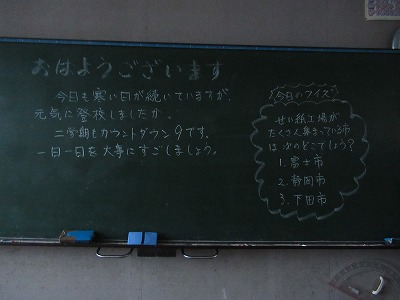 おはようございます
今日も寒い日が続いていますが、
元気に登校しましたか。
二学期もカウントダウン9です。
一日一日を大事にすごしましょう。
今日のクイズ
せい紙工場が
たくさん集まっている市
は次のどこでしょう?
1. 富士市
2. 静岡市
3. 下田市